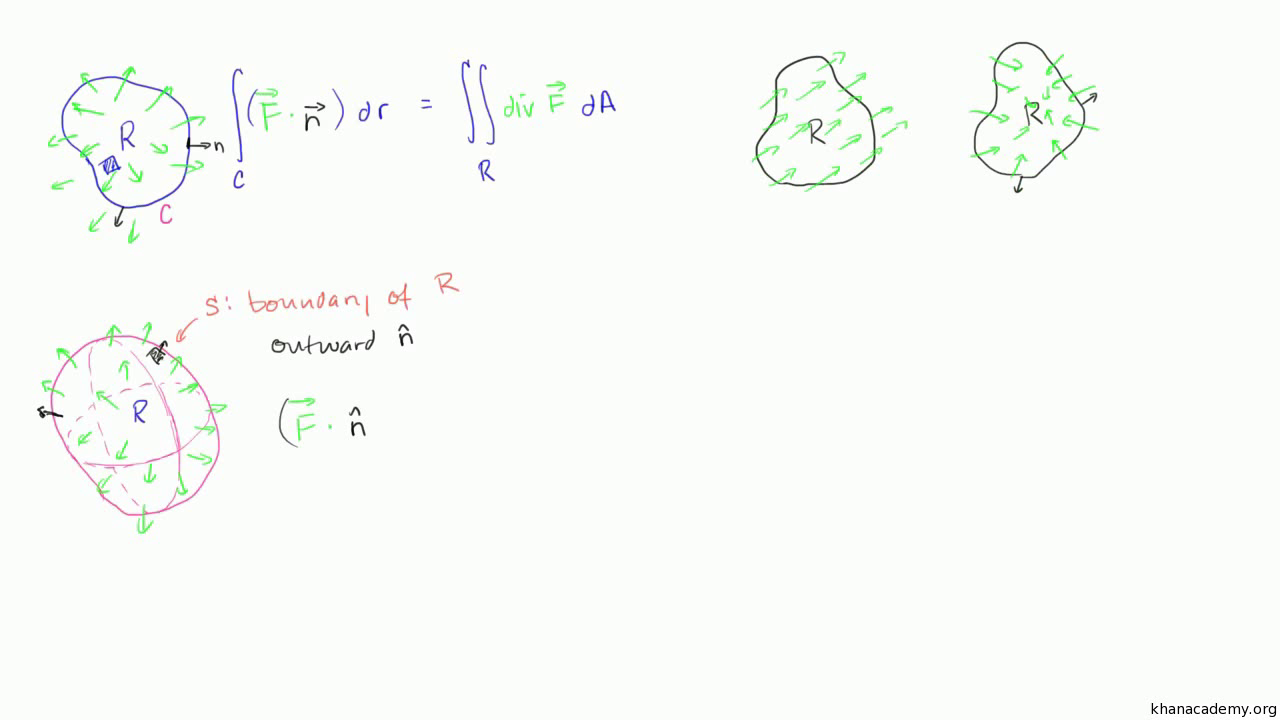 R
n
C
∫_C (F⃗ · n⃗) dr = ∬_R div F⃗ dA
R
R
S: boundary of R
outward n̂
R
(F⃗ · n̂
khanacademy.org